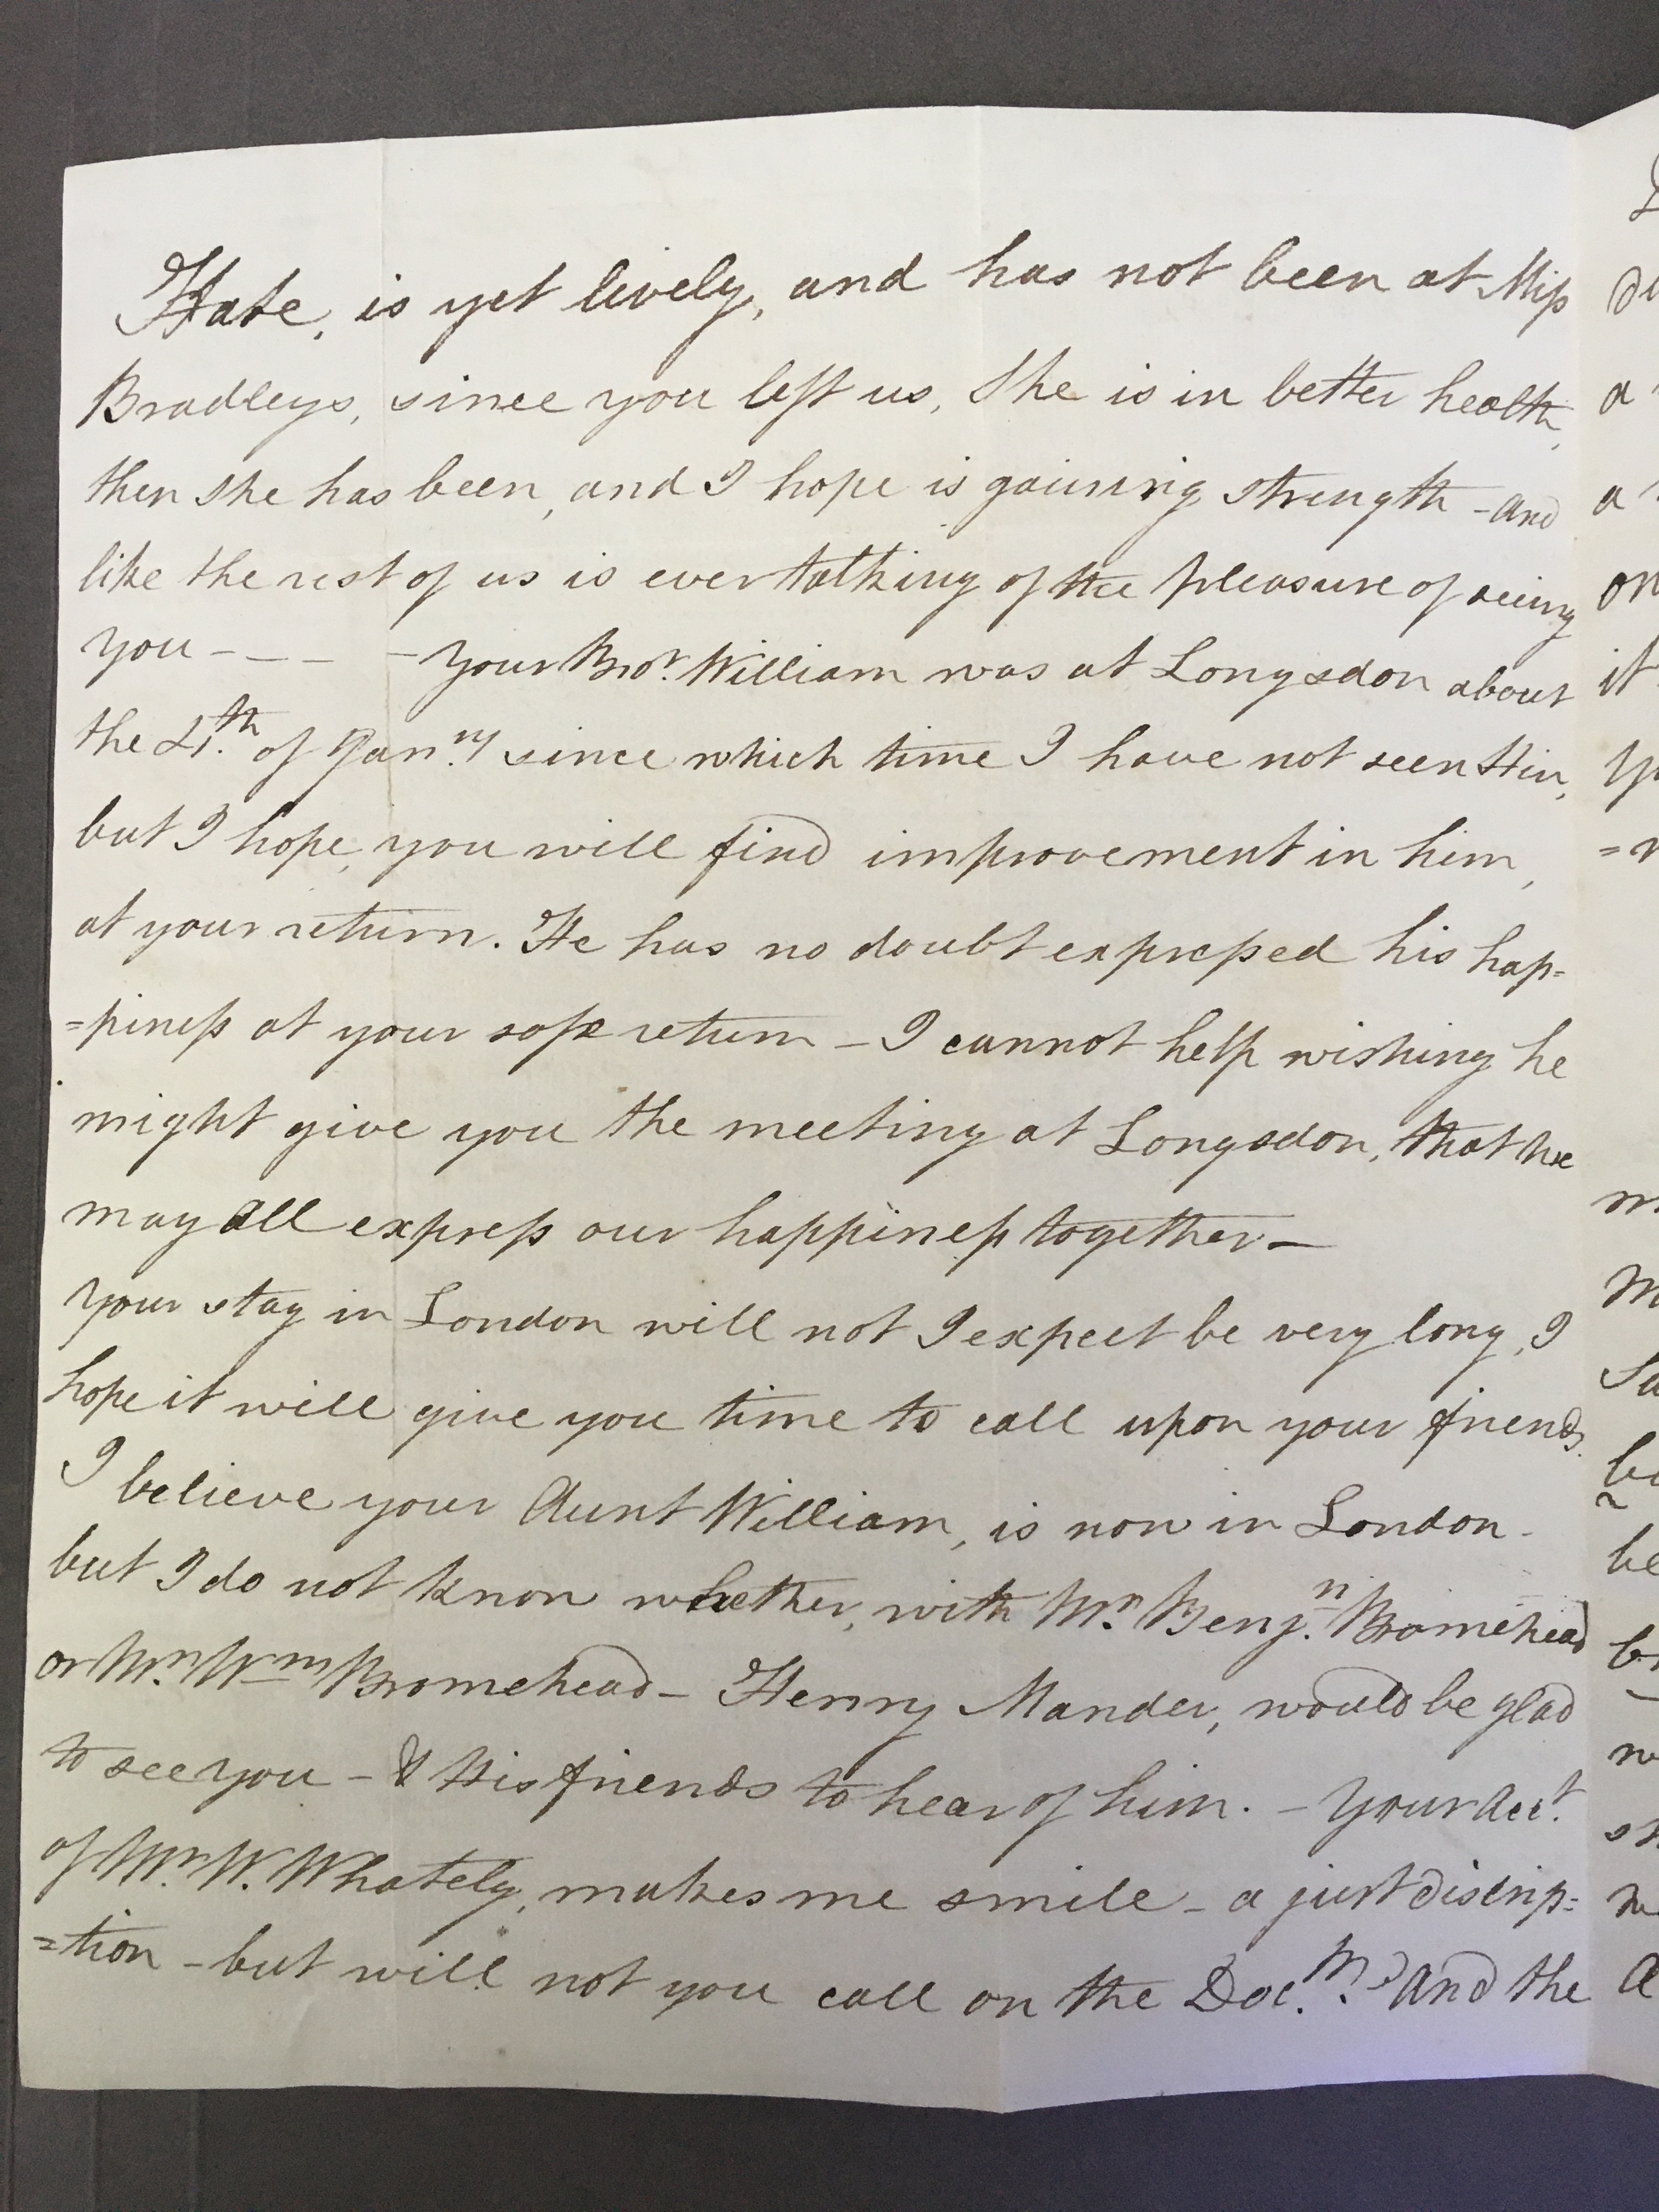 Kate, is yet lively, and has not been at Miss
Bradleys, since you left us, She is in better health,
then she has been, and I hope is gaining strength - and
like the rest of us is ever talking of the pleasure of seeing
you - - - - Your Bror. William was at Longsdon about
the of Janry. since which time I have not seen Him,
but I hope, you will find improvement in him,
at your return. He has no doubt expressed his hap=
=piness at your safe return - I cannot help wishing he
might give you the meeting at Longsdon, that we
may all express our happiness together -
Your stay in London will not I expect be very long, I
hope it will give you time to call upon your friends.
I believe your Aunt William, is now in London -
but I do not know whether, with Mr. Benjn. Bromehead
or Mr. Wm Bromehead - Henry Mander, would be glad
to see you - & His friends to hear of him. - Your Acct.
of Mr. W. Whately, makes me smile - a just discrip=
=tion - but will not you call on the and the